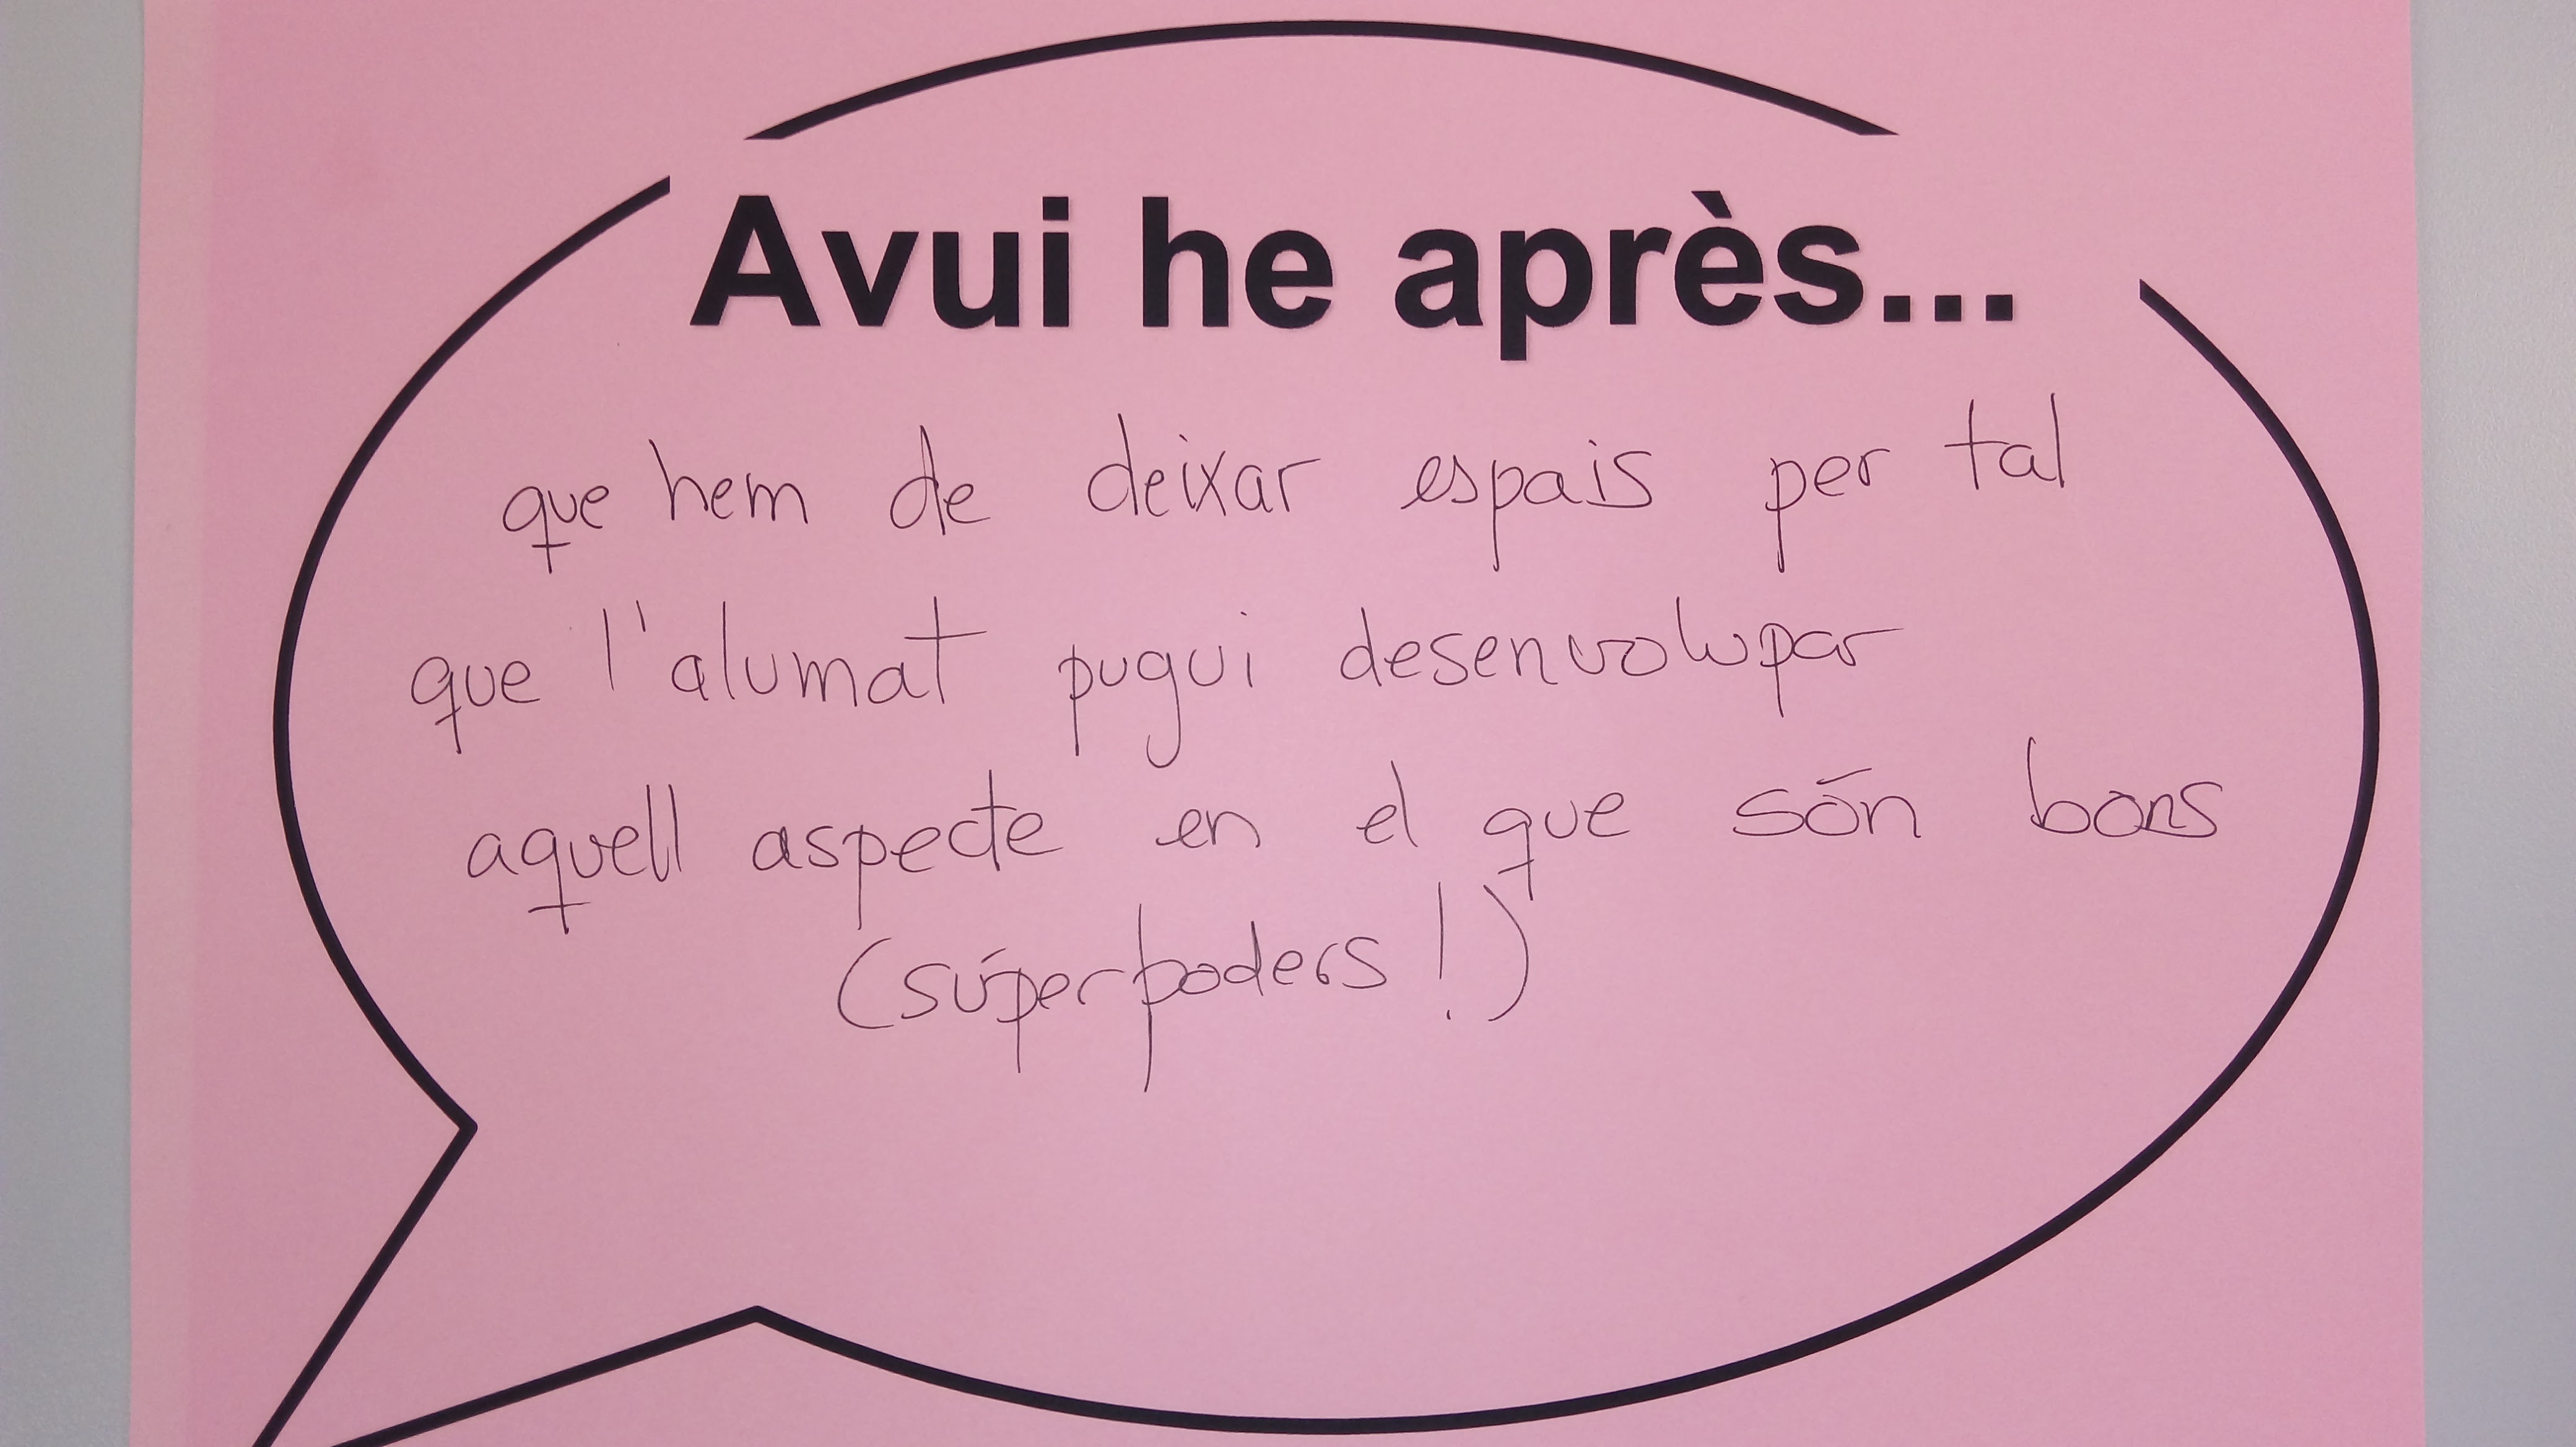 Avui he après...
que hem de deixar espais per tal
que l'alumat pugui desenvolupar
aquell aspecte en el que són bons
(súperpoders!)